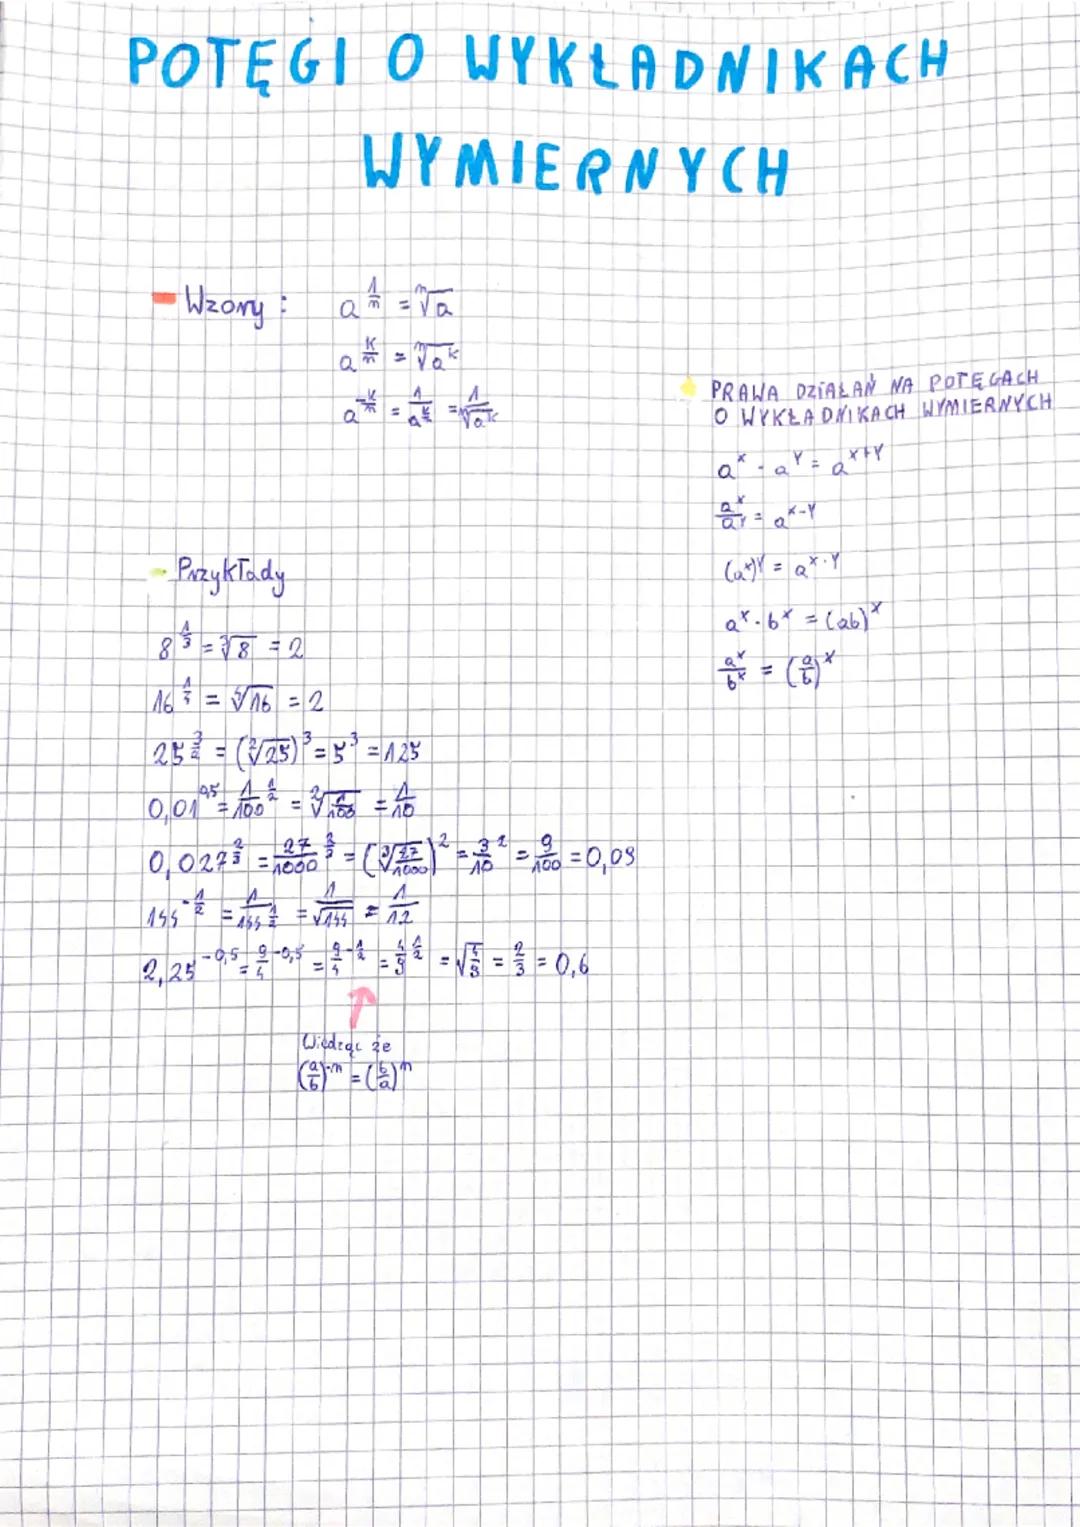 POTĘGI O WYKŁADNIKACH
WYMIERNYCH
- Wzory : a^(1/n) = ⁿ√a
a^(k/n) = ⁿ√a^k
a^(-k/n) = 1/a^(k/n) = 1/ⁿ√a^k
PRAWA DZIAŁAŃ NA POTĘGACH
O WYKŁADNIKACH WYMIERNYCH
a^x · a^y = a^(x+y)
a^x/a^y = a^(x-y)
(a^x)^y = a^(x·y)
a^x · b^x = (ab)^x
a^x/b^x = (a/b)^x
- Przykłady
8^(1/3) = ³√8 = 2
16^(1/4) = ⁴√16 = 2
25^(3/2) = (²√25)^3 = 5^3 = 125
0,01^0,5 = 1/100^(1/2) = ²√1/100 = 1/10
0,027^(2/3) = 27/1000^(2/3) = (³√27/1000)^2 = 3/10^2 = 9/100 = 0,09
144^(-1/2) = 1/144^(1/2) = 1/√144 = 1/12
2,25^(-0,5) = 9/4^(-0,5) = 9/4^(-1/2) = 4/9^(1/2) = √4/9 = 2/3 = 0,6
Wiedząc że
(a/b)^(-n) = (b/a)^n